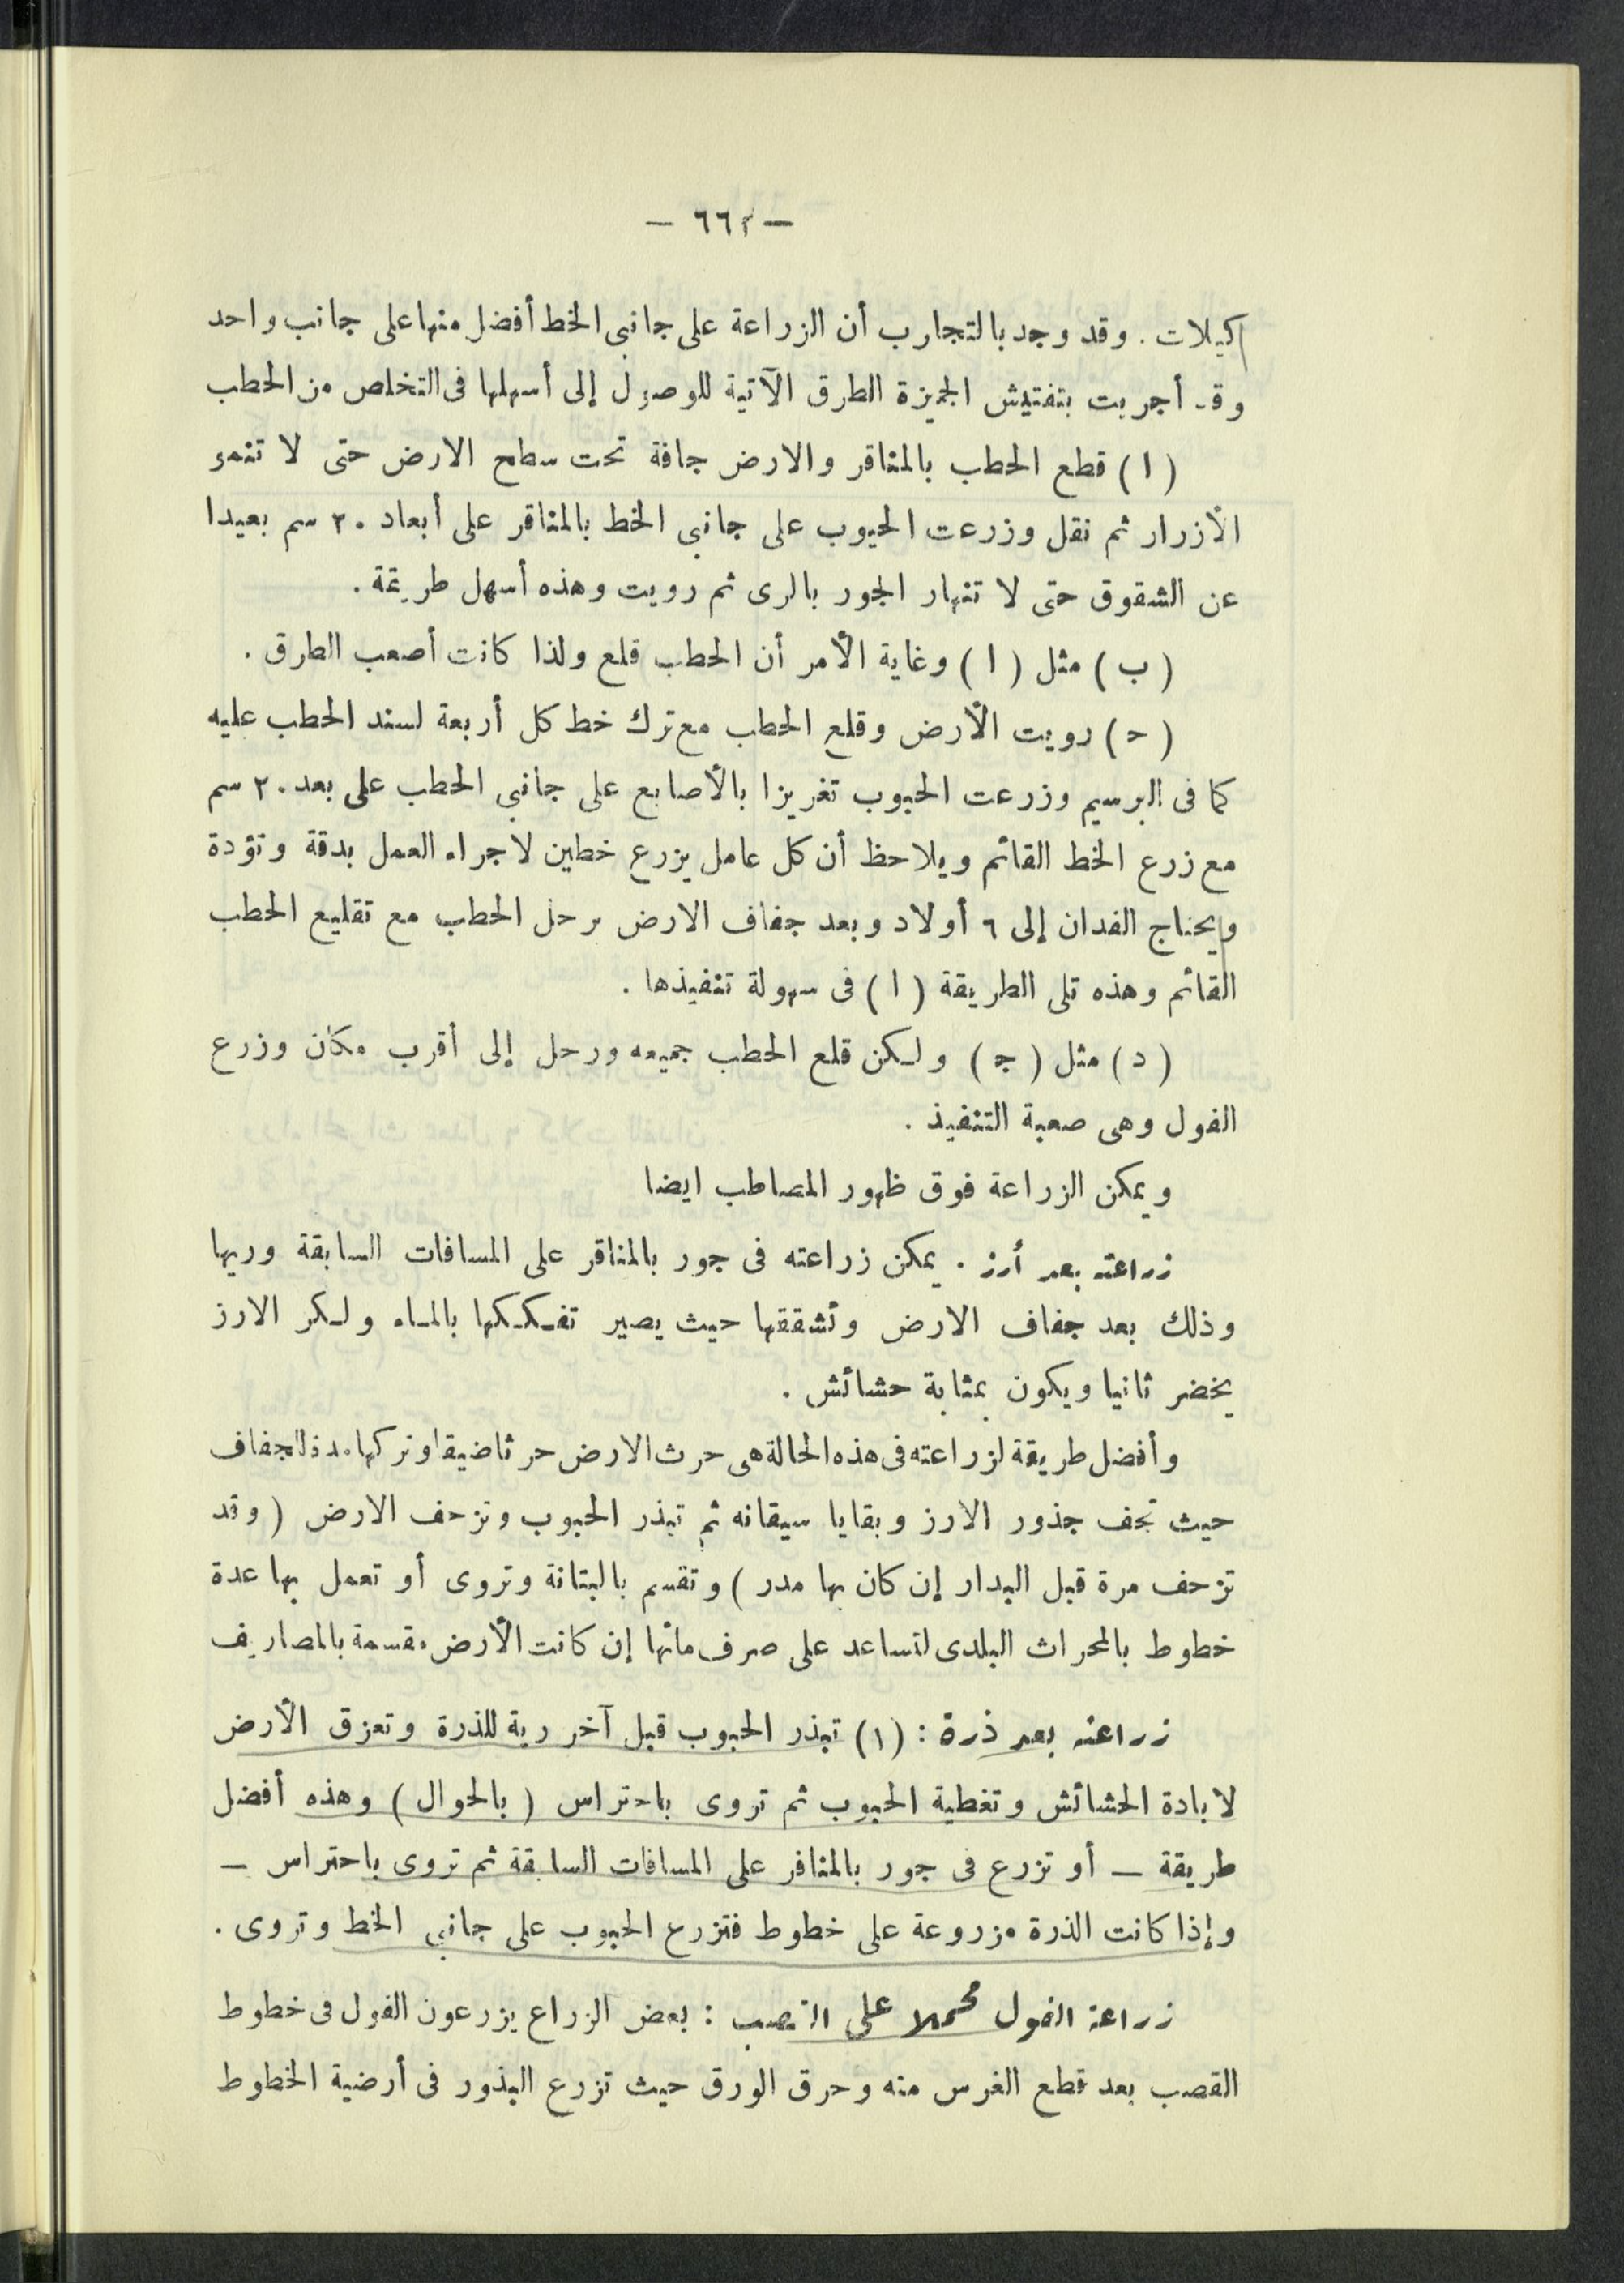 — ٦٦٢ —
كيلات . وقد وجد بالتجارب أن الزراعة على جانبى الخط أفضل منها على جانب واحد
وقد أجريت بتفتيش الجميزة الطرق الآتية للوصول إلى أسهلها فى التخلص من الحطب
( ا ) قطع الحطب بالمناقر والارض جافة تحت سطح الارض حتى لا تنمو
الأزرار ثم نقل وزرعت الحبوب على جانبى الخط بالمناقر على أبعاد ٢٠ سم بعيدا
عن الشقوق حتى لا تنهار الجور بالرى ثم رويت وهذه أسهل طريقة .
( ب ) مثل ( ا ) وغاية الأمر أن الحطب قلع ولذا كانت أصعب الطرق .
( ح ) رويت الأرض وقلع الحطب مع ترك خط كل أربعة لسند الحطب عليه
كما فى البرسيم وزرعت الحبوب تغريزا بالأصابع على جانبي الحطب على بعد ٢٠ سم
مع زرع الخط القائم ويلاحظ أن كل عامل يزرع خطين لاجراء العمل بدقة وتؤدة
ويحتاج الفدان إلى ٦ أولاد وبعد جفاف الارض يرحل الحطب مع تقليع الحطب
القائم وهذه تلى الطريقة ( ا ) فى سهولة تنفيذها .
( د ) مثل ( ج ) ولكن قلع الحطب جميعه ورحل إلى أقرب مكان وزرع
الفول وهى صعبة التنفيذ .
ويمكن الزراعة فوق ظهور المصاطب ايضا
زراعته بعد أرز . يمكن زراعته فى جور بالمناقر على المسافات السابقة وريها
وذلك بعد جفاف الارض وتشققها حيث يصير تفككها بالماء ولكن الارز
يخضر ثانيا ويكون بمثابة حشائش .
وأفضل طريقة لزراعته فى هذه الحالة هى حرث الارض حرثا ضيقا وتركها للجفاف
حيث تجف جذور الارز وبقايا سيقانه ثم تبذر الحبوب وتزحف الارض ( وقد
تزحف مرة قبل البدار إن كان بها مدر ) وتقسم بالبتانة وتروى أو تعمل بها عدة
خطوط بالمحراث البلدى لتساعد على صرف مائها إن كانت الأرض مقسمة بالمصاريف
زراعته بعد ذرة : (١) تبذر الحبوب قبل آخر رية للذرة وتعزق الأرض
لابادة الحشائش وتغطية الحبوب ثم تروى باحتراس ( بالحوال ) وهذه أفضل
طريقة — أو تزرع فى جور بالمناقر على المسافات السابقة ثم تروى باحتراس —
وإذا كانت الذرة مزروعة على خطوط فتزرع الحبوب على جانبي الخط وتروى .
زراعة الفول محملا على القصب : بعض الزراع يزرعون الفول فى خطوط
القصب بعد قطع الغرس منه وحرق الورق حيث تزرع البذور فى أرضية الخطوط